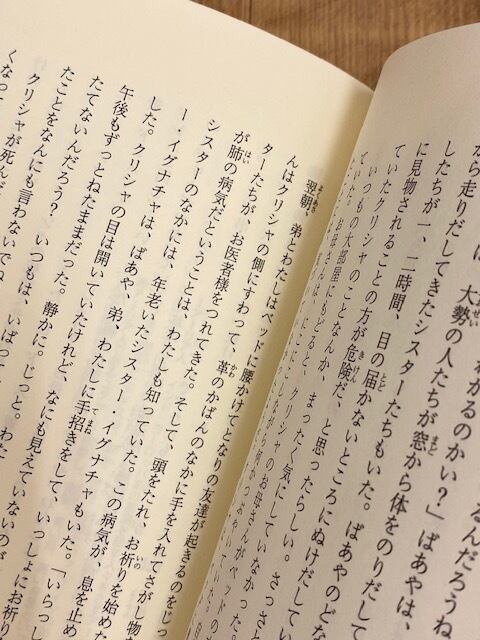 んだろうね
わかるのかい？」ばあやは、
大勢の人たちが窓から体をのりだして
から走りだしてきたシスターたちもいた。ばあやのどな
したちが一、二時間、目の届かないところにぬけだしてい
に見物されることの方が危険だ、と思ったらしい。さっさと
ていたクリシャのことなんか、まったく気にしていなかった。
いつもの大部屋にもどると、クリシャのお母さんがベッドの
にこにこしながら何かつぶやいていた。自
翌朝、弟とわたしはベッドに腰かけてとなりの友達が起きるのをじっ
んはクリシャの側にすわって、革のかばんのなかに手を入れてさがし物
ターたちが、お医者様をつれてきた。そして、頭をたれ、お祈りを始めた
が肺の病気だということは、わたしも知っていた。この病気が、息を止め
シスターのなかには、年老いたシスター・イグナチャもいた。「いらっし
ー・イグナチャは、ばあや、弟、わたしに手招きをして、いっしょにお祈り
した。クリシャの目は開いていたけれど、なにも見えていないのが
午後もずっとねたままだった。静かに。じっと。わた
たてないんだろう？　いつもは、いばって
たことをなんにも言わないでね
クリシャが死んだ
くなって